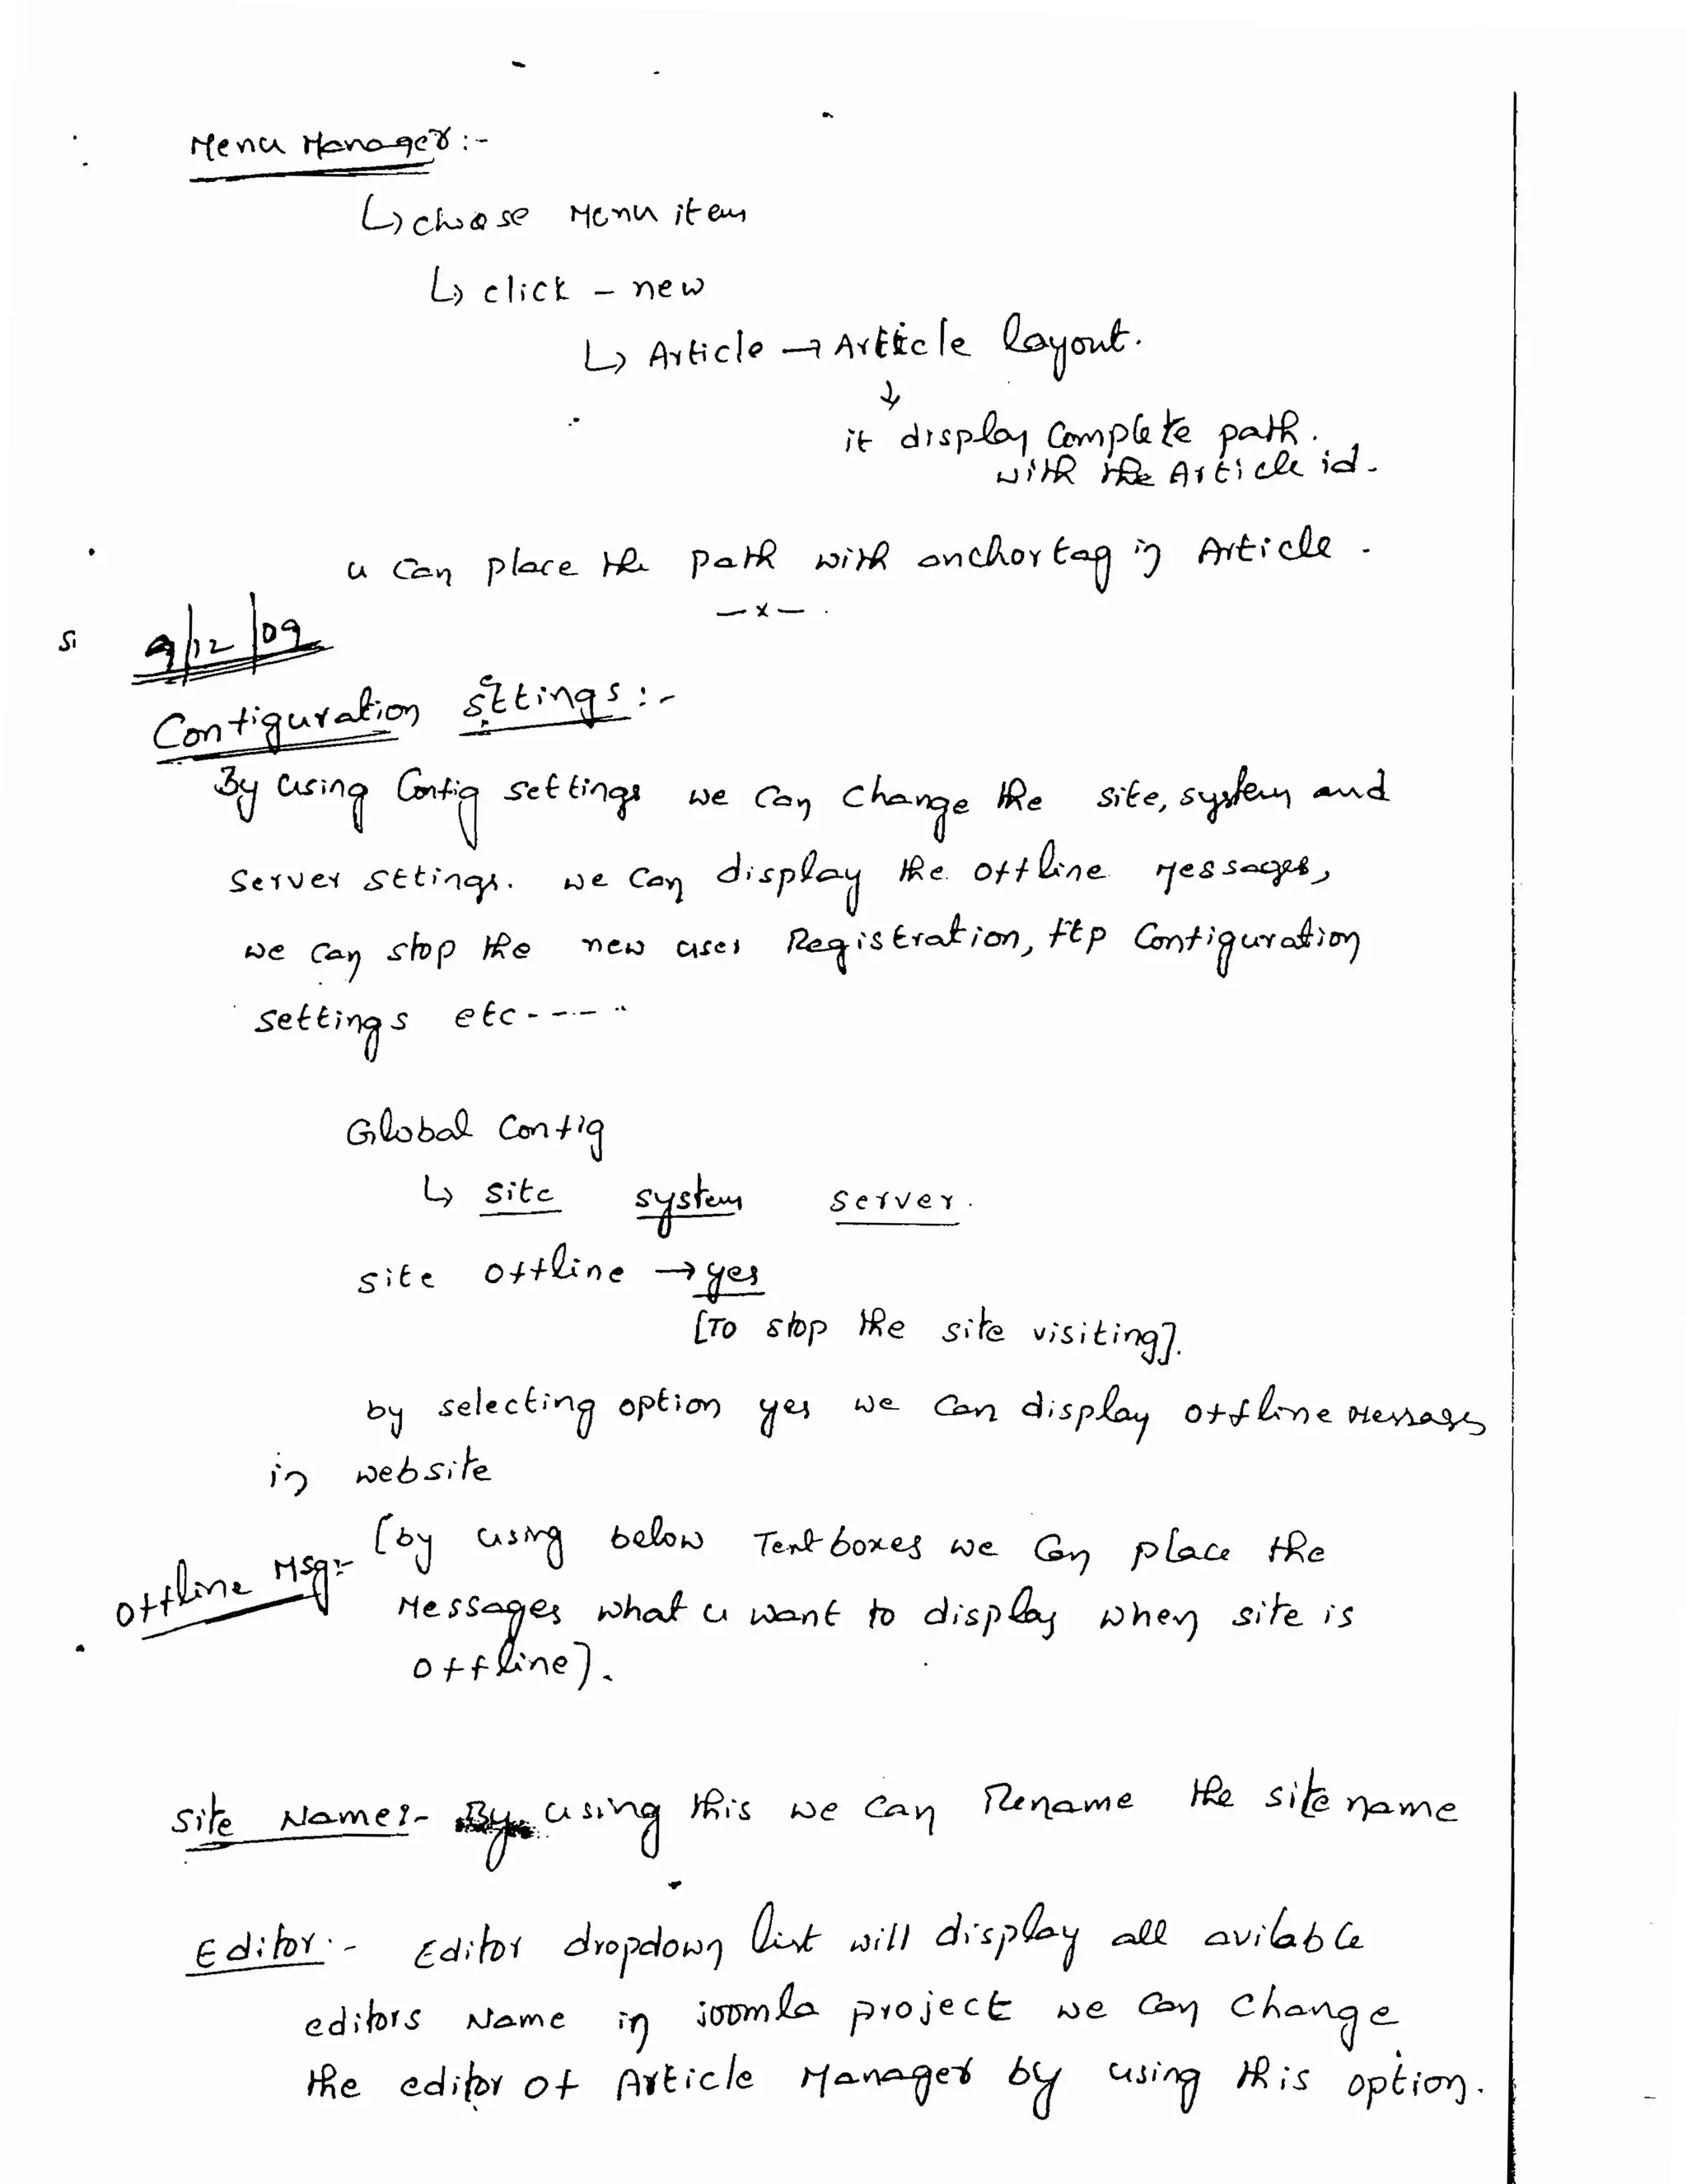 Menu Manager :-
↳ choose Menu item
↳ click - new
↳ Article → Article layout.
↓
it display complete path.
with the Article id.
u can place the path with anchor tag in Article.
—x—
9/12/09
Configuration settings :-
By using Config settings we can change the site, system and
server settings. we can display the offline Messages,
we can stop the new user Registration, ftp Configuration
settings etc-----
Global Config
↳ site system server.
site offline → yes
[To stop the site visiting].
by selecting option yes we can display offline Messages
in website
Offline Msg:- [by using below Text boxes we can place the
Messages what u want to display when site is
offline].
Site Name:- By using this we can Rename the site name
Editor:- Editor dropdown list will display all avilable
editors Name in joomla project we can change
the editor of Article Manager by using this option.